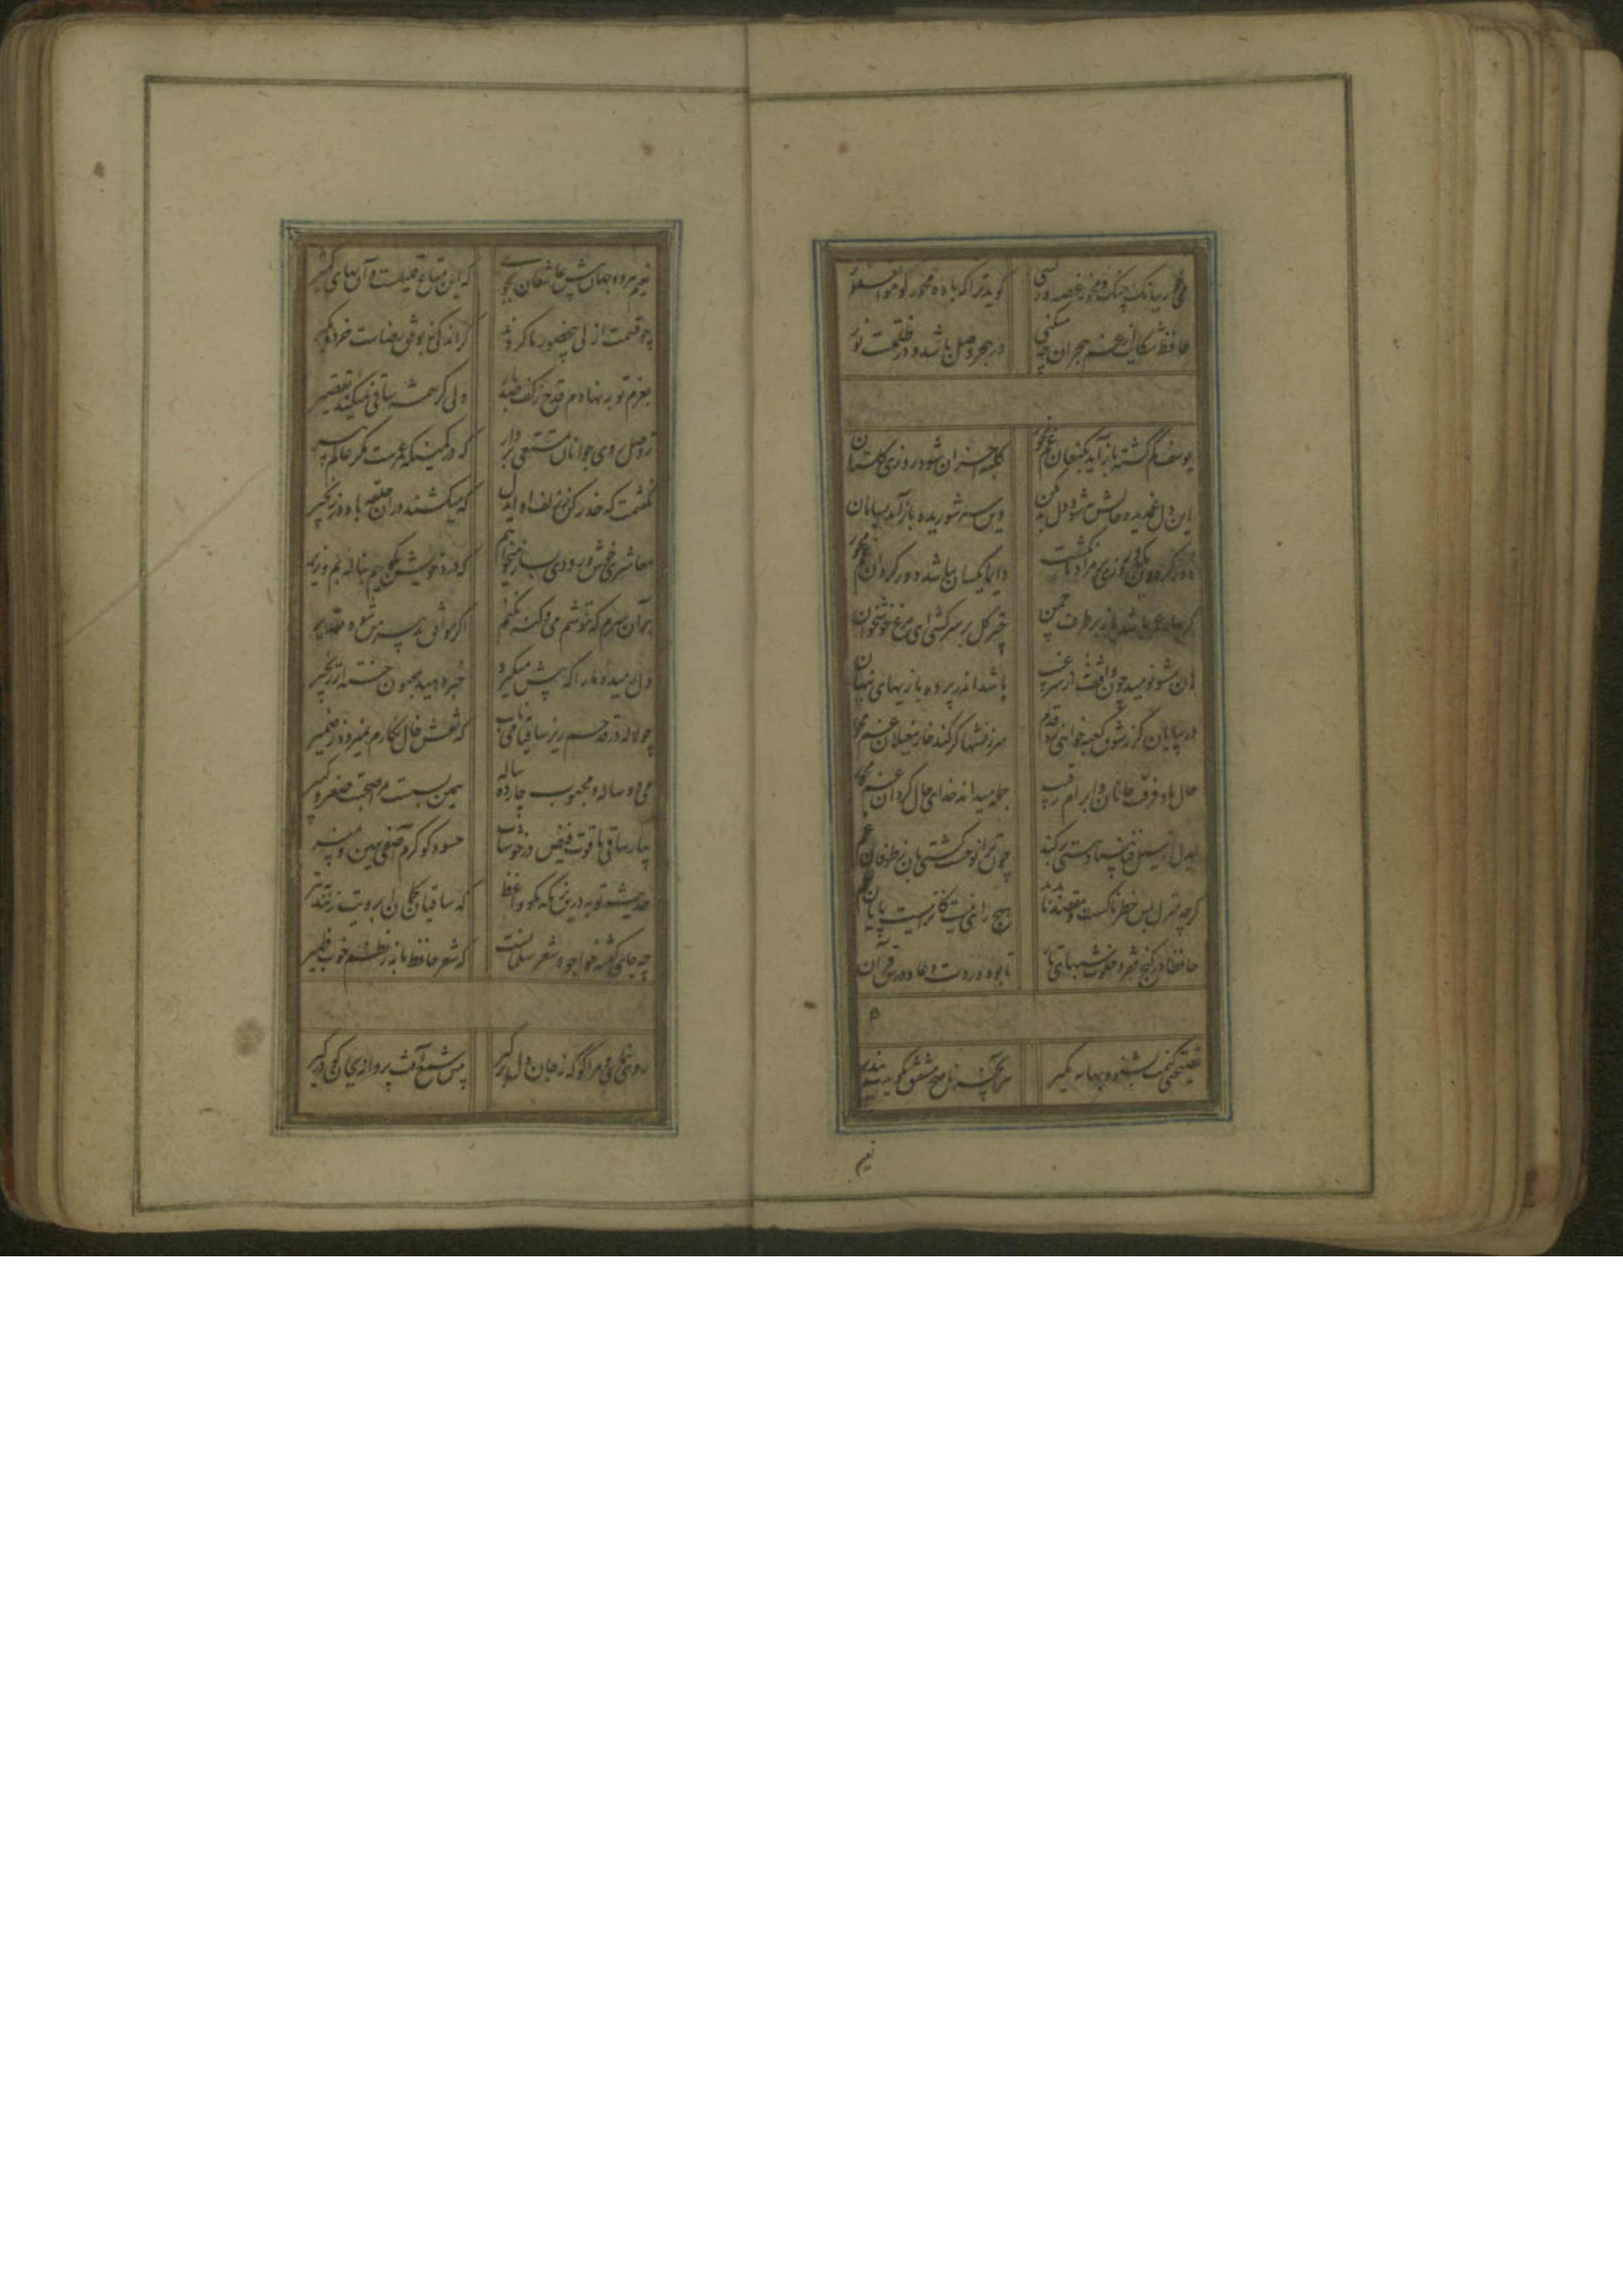 می خور ببانک چنک و مخور غصه ور کسی
کوید ترا که باده مخور کو هو الغفور
حافظ شکایت از غم هجران چه میکنی
در هجر وصل باشد و در ظلمت نور
یوسف کم کشته باز آید بکنعان غم مخور
کلبه احزان شود روزی کلستان
این دل غمدیده حالش به شود دل بد مکن
وین سر شوریده باز آید بسامان
دور کردون کر دو روزی بر مراد ما نکشت
دایما یکسان نباشد دور کردان غم مخور
کر بهار عمر باشد باز بر طرف چمن
چتر کل بر سر کشی ای مرغ خوشخوان
هان مشو نومید چون واقف نه از سر غیب
باشد اندر پرده بازیهای پنهان
در بیابان کر ز شوق کعبه خواهی زد قدم
سرزنشها کر کند خار مغیلان غم مخور
حال ما و فرقت جانان و ابرام رقیب
جمله میداند خدای حال کردان غم مخور
ایدل ار سیل فنا بنیاد هستی بر کند
چون ترا نوحست کشتی بان ز طوفان غم
کرچه منزل بس خطرناکست و مقصد
هیچ راهی نیست کانرا نیست پایان غم
حافظا در کنج فقر و خلوت شبهای تار
تا بود وردت دعا و درس قرآن
نصیحتی کنمت بشنو و بهانه مکیر
هر آنچه ناصح مشفق بکوید بپذیر
نعیم
نعیم هر دو جهان پیش عاشقان بجوی
که این متاع قلیلست و آن بهای کثیر
چو قسمت ازلی بیحضور ما کردند
کر اندکی نه بوفق رضاست خرده مکیر
بعزم توبه نهادم قدح ز کف صد بار
ولی کرشمه ساقی نمیکند تقصیر
ز وصل روی جوانان تمتعی بردار
که در کمینکه عمرست مکر عالم پیر
نکفتمت که حذر کن ز زلف او ایدل
که میکشند در آن حلقه باد در زنجیر
معاشری خوش و رودی بساز میخواهم
که درد خویش بکویم بناله بم و زیر
بر آن سرم که ننوشم می و کنه نکنم
اکر موافق تدبیر من شود تقدیر
چو لاله در قدحم ریز ساقیا می ناب
که نقش خال نکارم نمیرود ز ضمیر
می دو ساله و محبوب چارده ساله
همین بسست مرا صحبت صغیر و کبیر
بیار ساقی یاقوت فیض در خوشاب
حسود کو کرم آصفی ببین و بمیر
حدیث توبه درین بزمکه مکو واعظ
که ساقیان کمان ابرویت زنند بتیر
چه جای کفته خواجو و شعر سلمانست
که شعر حافظ ما به ز نظم خوب ظهیر
روی بنمای و مرا کو که ز جان دل برکیر
پیش شمع آتش پروانه بجان کو در کیر